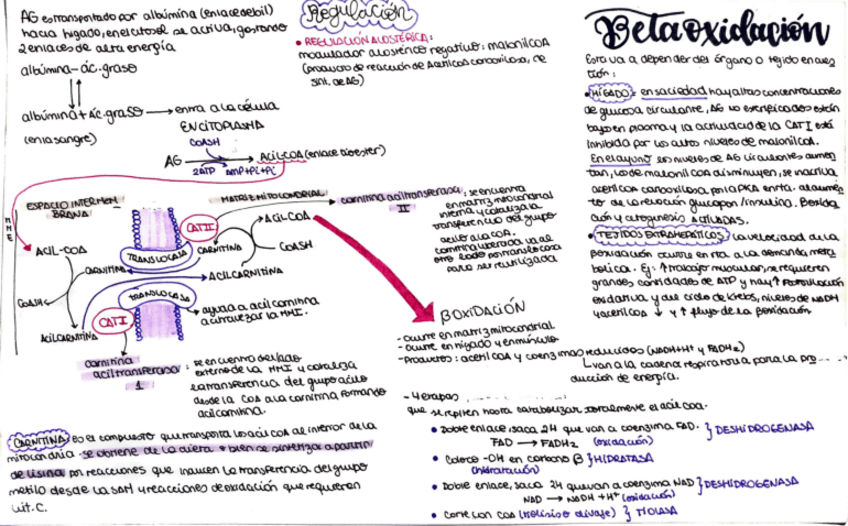 AG es transportado por albúmina (enlace debil)
hacia higado, en el citosol se activa, gastando
2 enlaces de alta energía
albúmina-ác.graso
albúmina + ác.graso → entra a la célula
(en la sangre)
EN CITOPLASMA
COASH
AG → Acil-COA (enlace tioester)
2ATP AMP+PPi+Pi
MME
ESPACIO INTERMEN
BRANA
MATRIZ MITOCONDRIAL
CAT II
TRANSLOCASA
CARNITINA
ACIL-COA
COASH
ACIL-COA
CARNITINA
ACILCARNITINA
COASH
TRANSLOCASA
ACILCARNITINA
CAT I
ayuda a acilcarnitina
a atravezar la MMI.
carnitina aciltransferasa
II
: se encuentra
en matriz mitocondrial
interna y cataliza la
transferencia del grupo
acilo a la COA.
carnitina liberada va al
otro lado por translocasa
para ser reutilizada
carnitina
aciltransferasa
1
: se encuentra del lado
externo de la MMI y cataliza
la transferencia del grupo acilo
desde la COA a la carnitina formando
acilcarnitina.
CARNITINA: es el compuesto que transporta los acil COA al interior de la
mitocondria. se obtiene de la dieta o bien se sintetiza a partir
de lisina por reacciones que incluyen la transferencia del grupo
metilo desde la SAM y reacciones de oxidación que requieren
vit. C.
Regulación
• REGULACIÓN ALOSTÉRICA:
modulador alosterico negativo: malonilCOA
(producto de reacción de Acetilcoa carboxilasa, de
sint. de AG)
βOXIDACIÓN
- ocurre en matriz mitocondrial
- ocurre en higado y en músculo
- Productos: acetil COA y coenzimas reducidos (NADH+H+ y FADH2)
van a la cadena respiratoria para la pro
ducción de energía.
- 4 etapas
que se repiten hasta catabolizar totalmente el acil coa.
• Doble enlace, saca 2H que van a coenzima FAD. } DESHIDROGENASA
FAD → FADH2 (oxidación)
• Coloco -OH en carbono β } HIDRATASA
(hidratación)
• Doble enlace, saca 2H que van a coenzima NAD } DESHIDROGENASA
NAD → NADH + H+ (oxidación)
• Corte con COA (tiolisis o clivaje) } TIOLASA
Betaoxidación
Esto va a depender del órgano o tejido en cues
tión:
• HIGADO: en saciedad hay altas concentraciones
de glucosa circulante, AG no esterificados están
bajos en plasma y la actividad de la CAT I está
inhibida por los altos niveles de malonil COA.
En el ayuno los niveles de AG circulantes aumen
tan, los de malonil COA disminuyen, se inactiva
acetil COA carboxilasa por la PKA en rta. al aumen
to de la relación glucagon/insulina. Boxida
ción y cetogenesis ACTIVADAS.
• TEJIDOS EXTRAHEPÁTICOS: la velocidad de la
βoxidación ocurre en rta a la demanda meta
bolica. Ej: ↑ trabajo muscular, se requieren
grandes cantidades de ATP y hay ↑ fosforilación
oxidativa y del ciclo de Krebs, niveles de NADH
y acetil COA ↓ y ↑ flujo de la βoxidación